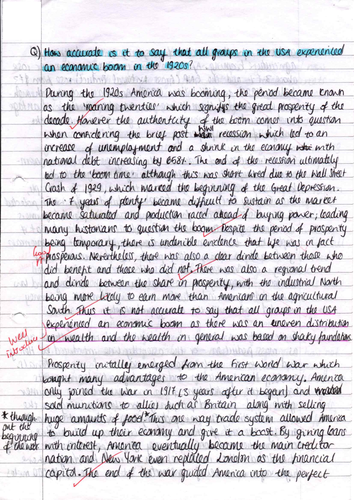 Q) How accurate is it to say that all groups in the USA experienced
an economic boom in the 1920s?
During the 1920s America was booming, the period became known
as the 'roaring twenties' which signifys the great prosperity of the
decade. However the authenticity of the boom comes into question
when considering the brief post WWI recession which led to an
increase of unemployment and a shrink in the economy with
national debt increasing by 658%. The end of the recession ultimately
led to the 'boom time' although this was short lived due to the Wall Street
Crash of 1929, which marked the beginning of the Great Depression.
The '7 years of plenty' became difficult to sustain as the market
became saturated and production raced ahead of buying power, leading
many historians to question the boom. Despite the period of prosperity
being temporary, there is undenible evidence that life was in fact
prosperous. Nevertheless, there was also a clear divide between those who
did benefit and those who did not. There was also a regional trend
and divide between the share in prosperity, with the industrial North
being more likely to earn more than Americans in the agricultural
South. Thus it is not accurate to say that all groups in the USA
experienced an economic boom as there was an uneven distribution
in wealth and the wealth in general was based on shaky foundations.
Well
introduction
Prosperity initally emerged from the First World War which
bought many advantages to the American economy. America
only joined the war in 1917 (3 years after it began) and
sold munitions to allies such as Britain along with selling
huge amounts of food.* This one way trade system allowed America
* through
out the
beginning
of the war
to build up their economy and give it a boost. By giving loans
with interest, America eventually became the main creditor
nation and New York even replaced London as the financial
capital. The end of the war guided America into the perfect